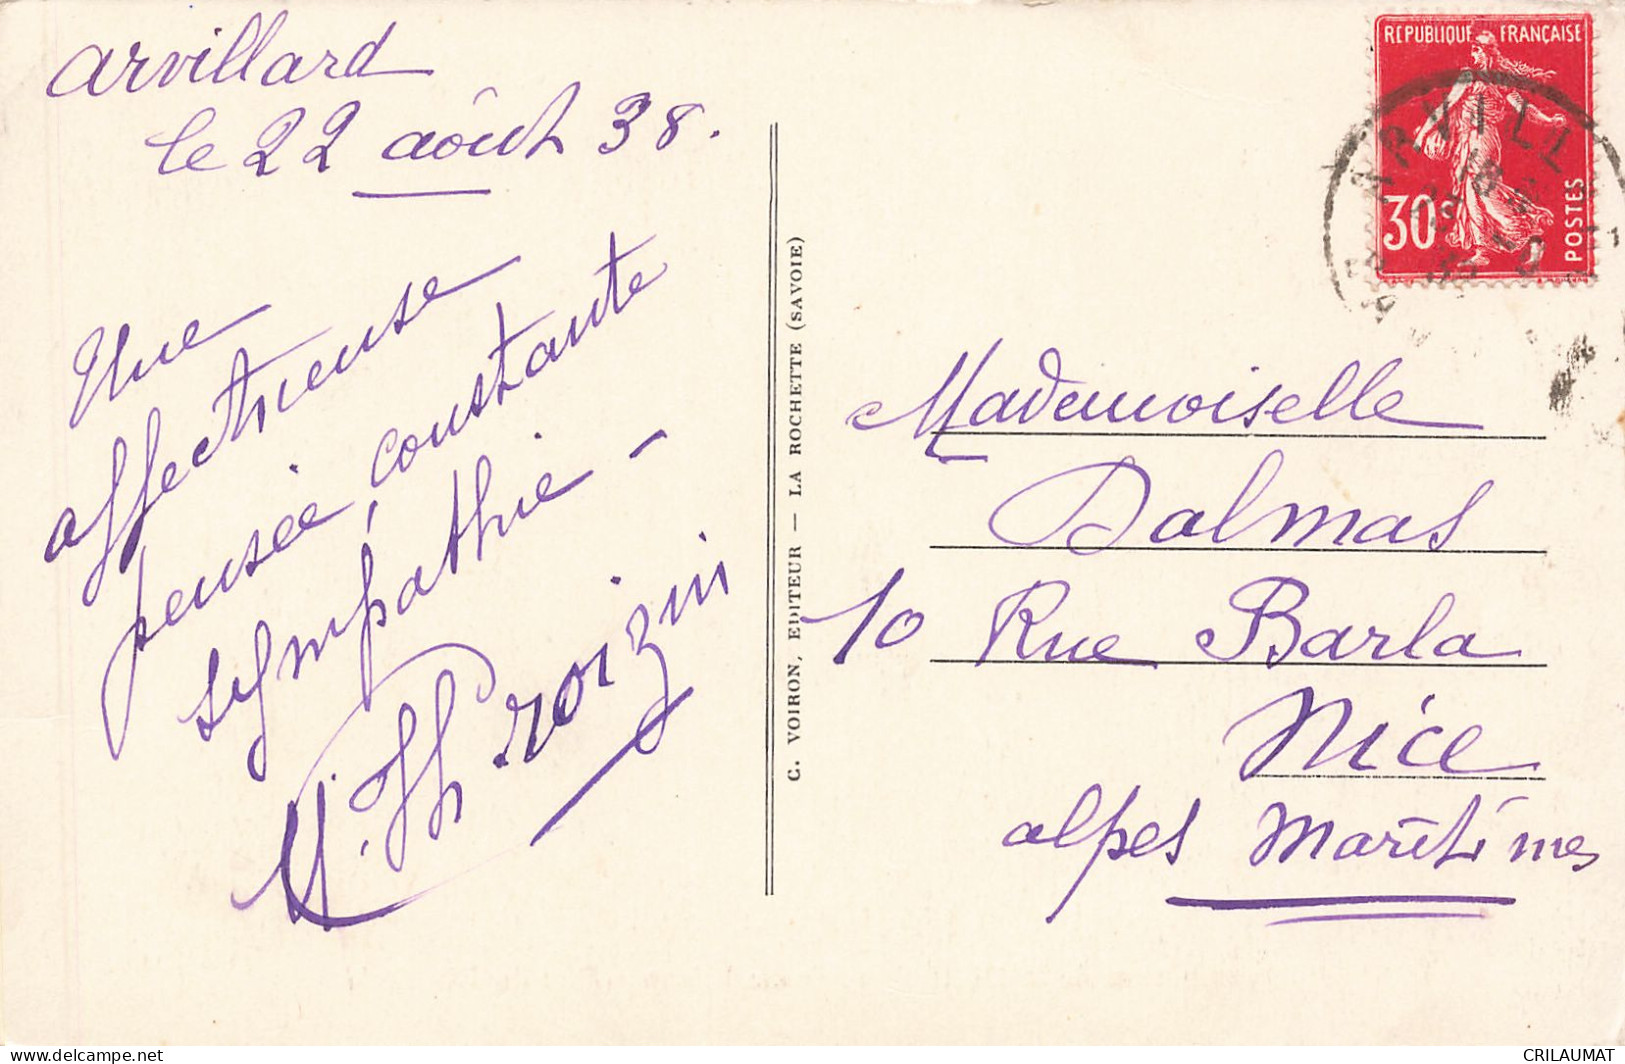 arvillard
le 22 août 38.
Une
affectueuse
pensée, constante
sympathie -
C. VOIRON, EDITEUR — LA ROCHETTE (SAVOIE)
REPUBLIQUE FRANÇAISE
30c
POSTES
ARVILL
Mademoiselle
Dalmas
10 Rue Barla
Nice
alpes Maritimes
delcampe.net
CRILAUMAT